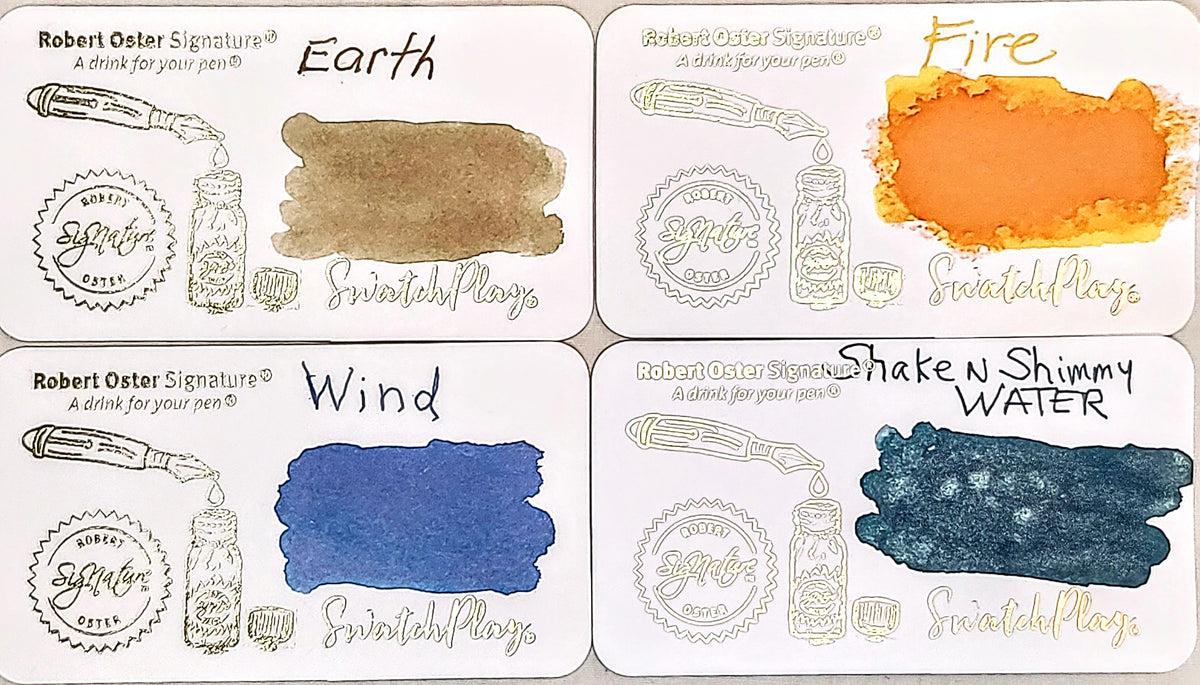 Robert Oster Signature®
A drink for your pen®
Earth
ROBERT
Signature
OSTER
SwatchPlay®
Robert Oster Signature®
A drink for your pen®
Fire
ROBERT
Signature
OSTER
SwatchPlay®
Robert Oster Signature®
A drink for your pen®
Wind
ROBERT
Signature
OSTER
SwatchPlay®
Robert Oster Signature®
A drink for your pen®
Shake N Shimmy
WATER
ROBERT
Signature
OSTER
SwatchPlay®